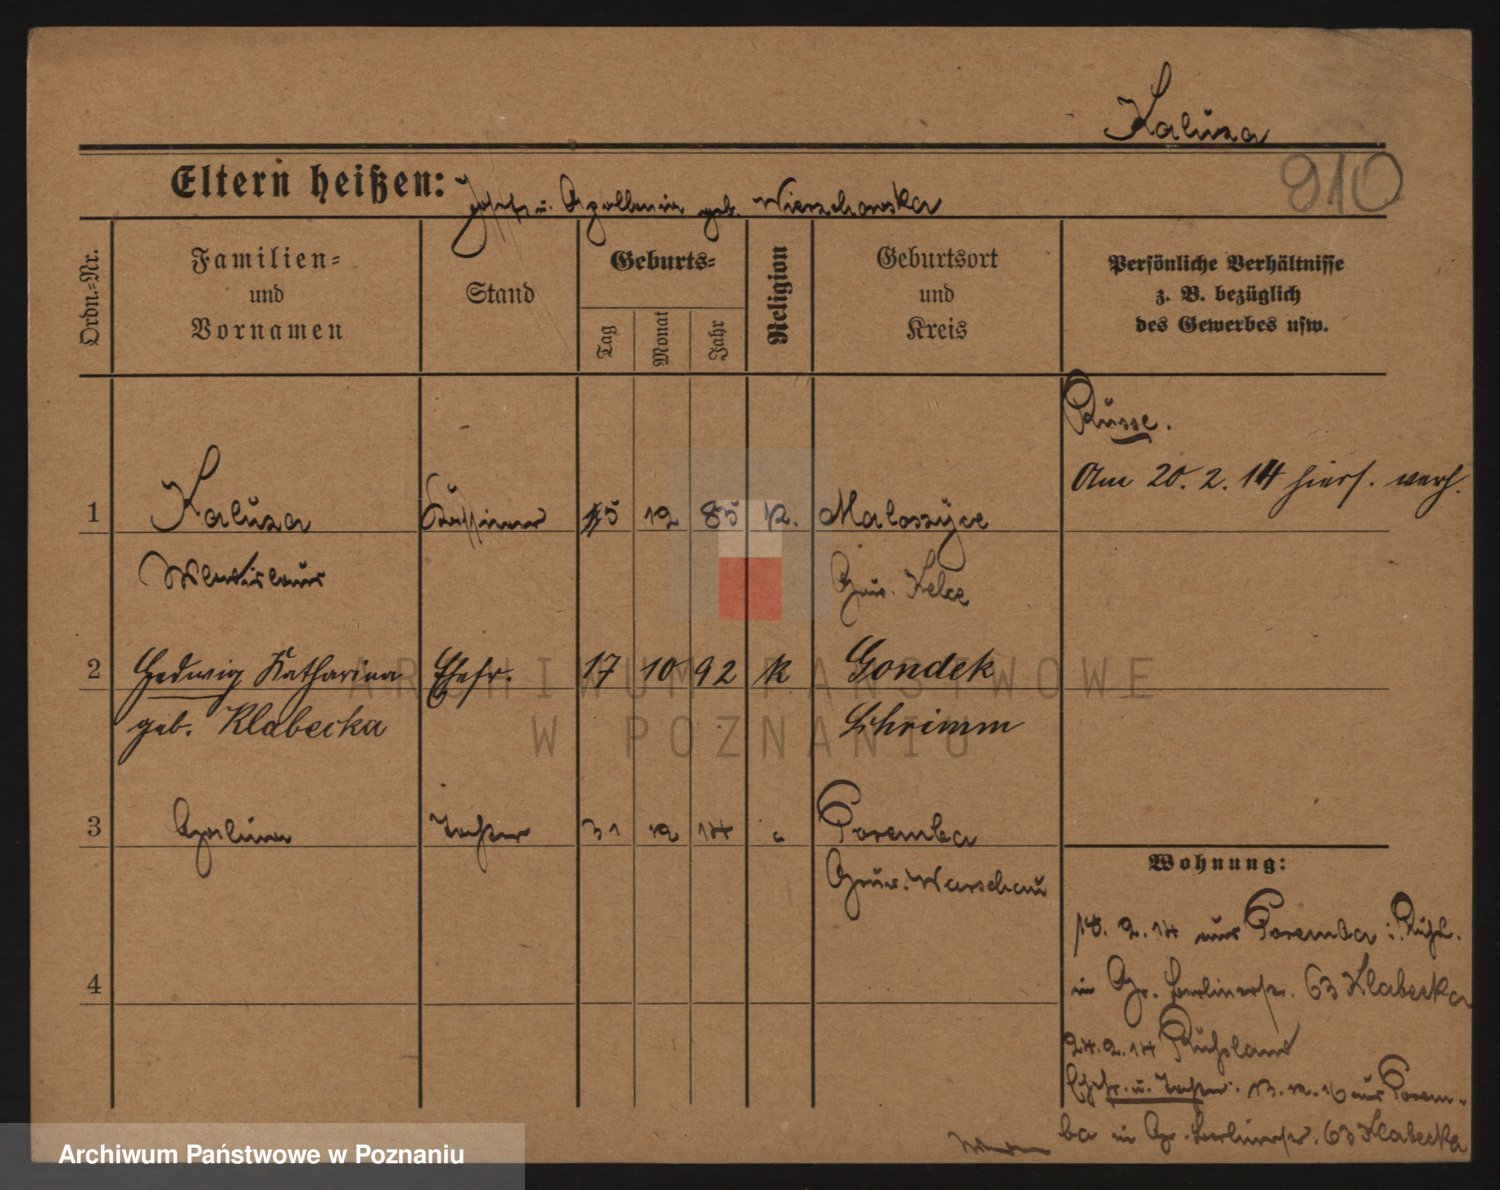 Kaluza
910
Eltern heißen: Josef u. Apollonia geb. Wierzchowska
Ordn.-Nr.
Familien- und Vornamen
Stand
Geburts-
Tag
Monat
Jahr
Religion
Geburtsort und Kreis
Persönliche Verhältnisse
z. B. bezüglich
des Gewerbes usw.
Russe.
Am 20. 2. 14 hiers. verh.
1 Kaluza 15 12 85 k. Maloszyce
Wladislaus Gouv. Kelce
2 Hedwig Katharina Ehefr. 17 10 92 k Gondek
geb. Klabecka Schrimm
3 Tochter 31 12 14 " Poremba
Gouv. Warschau
4
Wohnung:
18. 2. 14 aus Poremba i. Rußl.
in Gr. Berlinerstr. 63 Klabecka
24. 2. 14 Rußland
Ehefr. u. Tochter 13. 12. 16 aus Porem-
ba in Gr. Berlinerstr. 63 Klabecka
ARCHIWUM PAŃSTWOWE
W POZNANIU
Archiwum Państwowe w Poznaniu